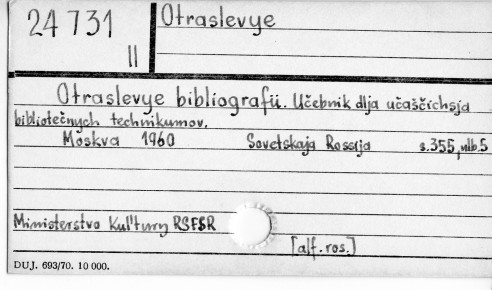 24 731
II
Otraslevye
Otraslevye bibliografii. Učebnik dlja učaščichsja
bibliotečnych technikumov.
Moskva 1960 Sovetskaja Rossija s.355,
Ministerstvo Kul'tury RSFSR
[alf. ros.]
DUJ. 693/70. 10 000.